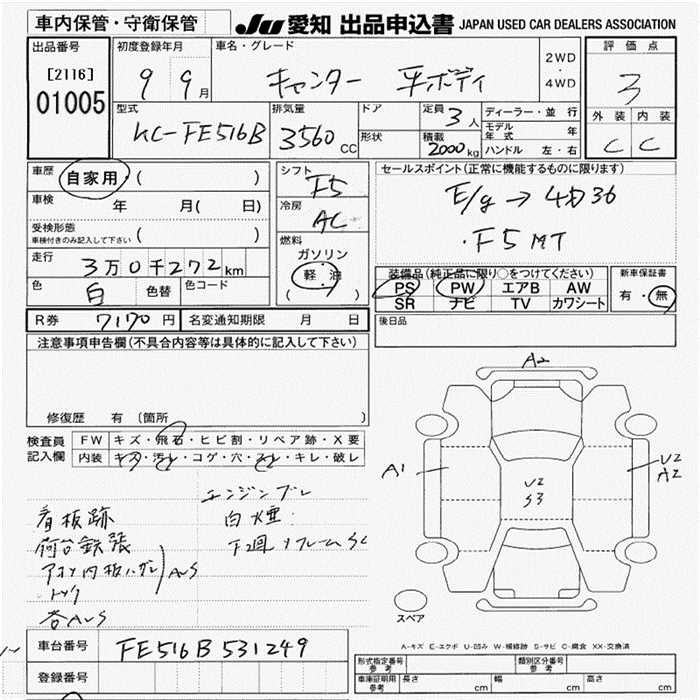 車内保管・守衛保管
JU 愛知 出品申込書 JAPAN USED CAR DEALERS ASSOCIATION
出品番号
[2116]
01005
初度登録年月
9 9月
車名・グレード
キャンター 平ボディ
2WD
・
4WD
評価点
3
外装 内装
C C
型式
KC-FE516B
排気量
3560 CC
ドア
形状
定員 3人
積載 2000kg
ディーラー・並行
モデル年式 年
ハンドル 左・右
車歴
自家用・( )
車検 年 月( 日)
受検形態
車検付きのみ記入して下さい ( )
走行 3万0千272km
色 白 色替 色コード
シフト
F5
冷房
AC
燃料
ガソリン
・
軽・油
( )
セールスポイント(正常に機能するものに限ります)
E/g → 4D36
・F5 MT
装備品(純正品に限り○をつけてください)
PS PW エアB AW
SR ナビ TV カワシート
新車保証書
有・無
後日品
R券 7170円 名変通知期限 月 日
注意事項申告欄(不具合内容等は具体的に記入して下さい)
修復歴 有〔箇所
検査員記入欄
FW キズ・飛石・ヒビ割・リペア跡・X要
内装 キズ・汚レ・コゲ・穴・スレ・キレ・破レ
エンジンブレ
白煙
下廻り フレームSC
看板跡
荷台鉄張
アオリ内板ハガレ
AS
各AS
A2
A1
U2
S3
U2
A2
スペア
A-キズ E-エクボ U-凹み W-補修跡 S-サビ C-腐食 XX-交換済
車台番号 FE516B 531249
登録番号
形式指定番号 参考
類別区分番号 参考
車庫証明用 参考 長さ cm 幅 cm 高さ cm